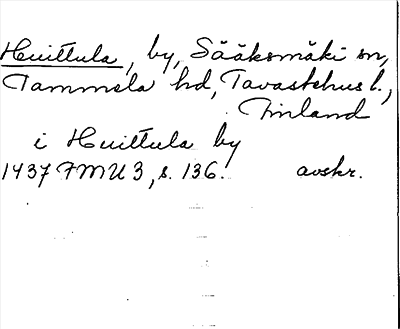 Huittula, by, Sääksmäki sn,
Tammela hd, Tavastehus l.,
Finland
i Huittula by
1437 FMU 3, s. 136. avskr.